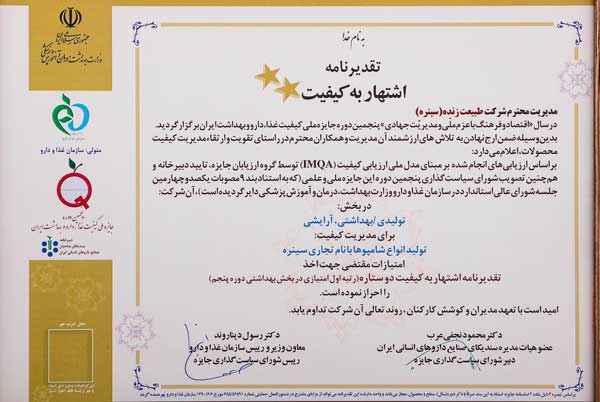 به نام خدا
تقدیرنامه
اشتهار به کیفیت
مدیریت محترم شرکت طبیعت زنده (سینره)
در سال «اقتصاد و فرهنگ با عزم ملّی و مدیریّت جهادی» پنجمین دوره جایزه ملی کیفیت غذا، دارو و بهداشت ایران برگزار گردید.
بدین وسیله ضمن ارج نهادن به تلاش های ارزشمند آن مدیریت و همکاران محترم در راستای تقویت و ارتقاء مدیریت کیفیت
محصولات، اعلام می دارد:
بر اساس ارزیابی های انجام شده بر مبنای مدل ملی ارزیابی کیفیت (IMQA) توسط گروه ارزیابان جایزه، تایید دبیرخانه و
هم چنین تصویب شورای سیاست گذاری پنجمین دوره این جایزه ملی و علمی (که به استناد بند ۹ مصوبات یکصد و چهارمین
جلسه شورای عالی استاندارد در سازمان غذا و دارو وزارت بهداشت، درمان و آموزش پزشکی دایر گردیده است)، آن شرکت:
در بخش:
تولیدی /بهداشتی، آرایشی
برای مدیریت کیفیت:
تولید انواع شامپوها با نام تجاری سینره
امتیازات مقتضی جهت اخذ
تقدیرنامه اشتهار به کیفیت دو ستاره (رتبه اول امتیازی در بخش بهداشتی دوره پنجم)
را احراز نموده است.
امید است با تعهد مدیران و کوشش کارکنان، روند تعالی آن شرکت تداوم یابد.
دکتر محمود نجفی عرب
عضو هیات مدیره سندیکای صنایع داروهای انسانی ایران
دبیر شورای سیاست گذاری جایزه
دکتر رسول دیناروند
معاون وزیر و رییس سازمان غذا و دارو
رییس شورای سیاست گذاری جایزه
جمهوری اسلامی ایران
وزارت بهداشت، درمان و آموزش پزشکی
متولی: سازمان غذا و دارو
جایزه ملی کیفیت غذا، دارو و بهداشت ایران
دبیرخانه:
سندیکای صاحبان
صنایع داروهای انسانی ایران
محل ضرب مهر